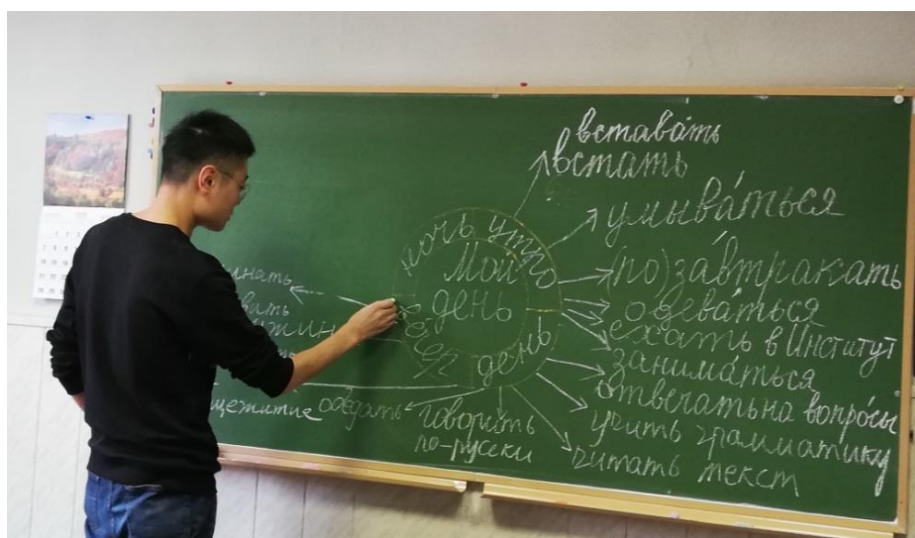 вставать
встать
умываться
(по)завтракать
одеваться
ехать в Институт
заниматься
отвечать на вопросы
учить грамматику
читать текст
говорить
по-русски
обедать
ночь утро
Мой
день
день